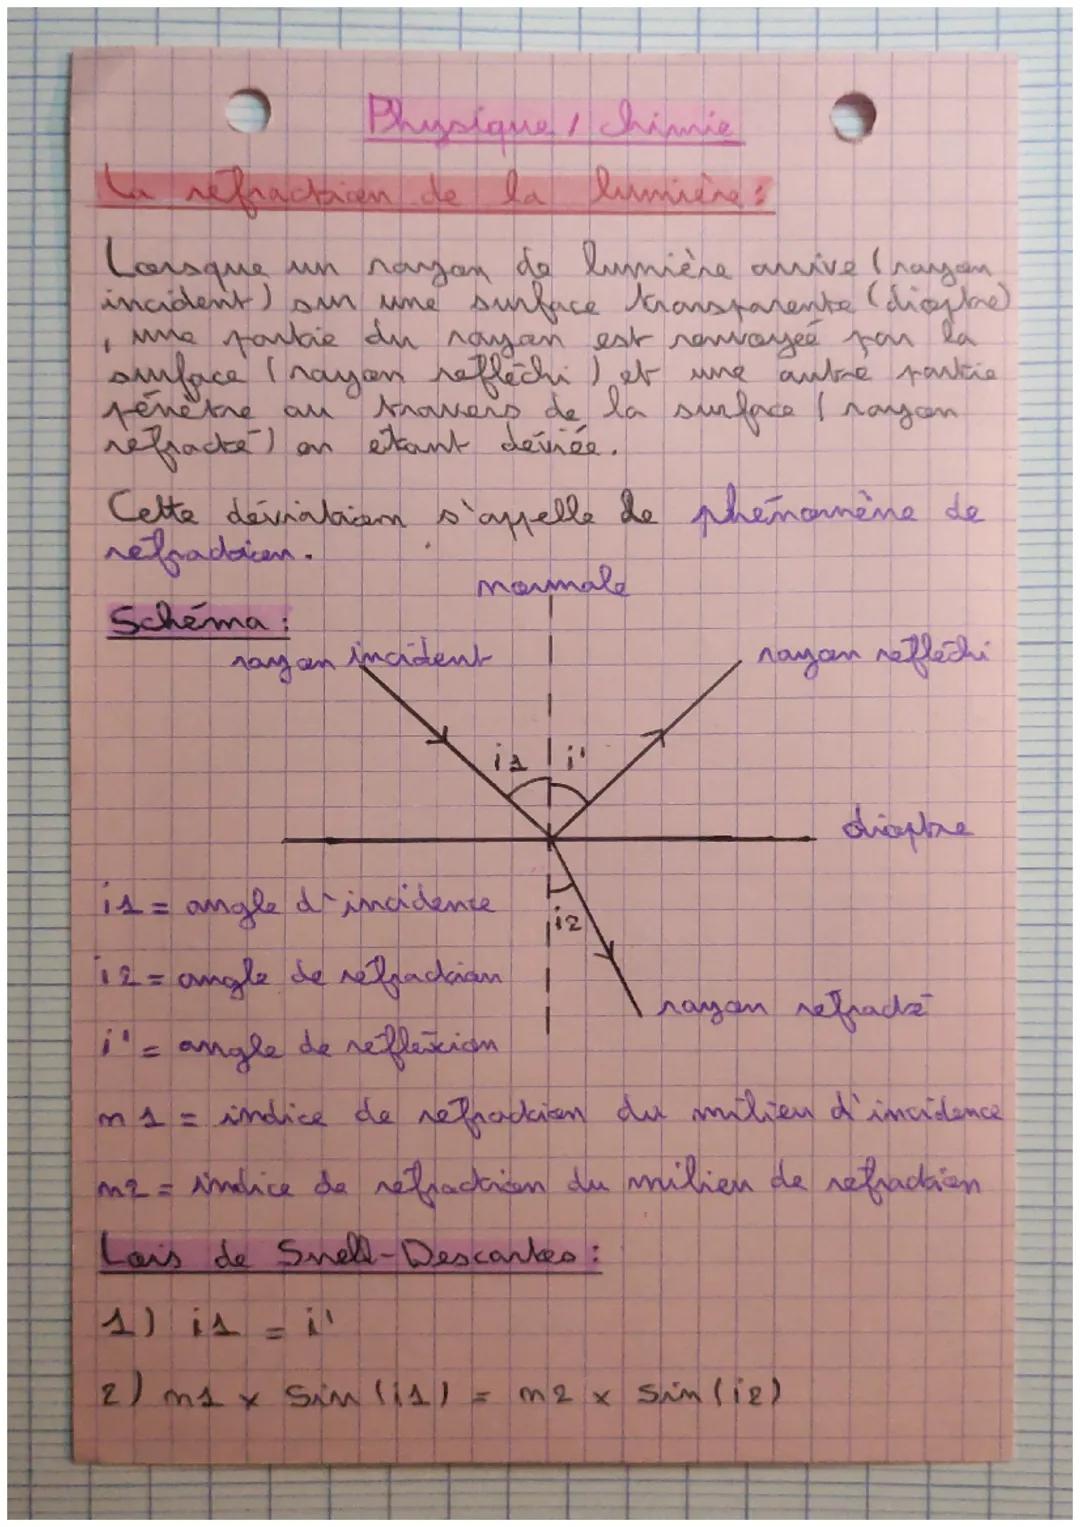 Physique / chimie
La réfraction de la lumière :
Lorsque un rayon de lumière arrive (rayon
incident) sur une surface transparente (dioptre)
, une partie du rayon est renvoyée par la
surface (rayon réfléchi) et une autre partie
pénètre au travers de la surface (rayon
réfracté) en étant déviée.
Cette déviation s'appelle le phénomène de
réfraction.
normale
Schéma :
rayon incident
rayon réfléchi
i1 i'
dioptre
i1 = angle d'incidence
i2
i2 = angle de réfraction
rayon réfracté
i' = angle de réflexion
n1 = indice de réfraction du milieu d'incidence
n2 = indice de réfraction du milieu de réfraction
Lois de Snell-Descartes :
1) i1 = i'
2) n1 x Sin (i1) = n2 x Sin (i2)